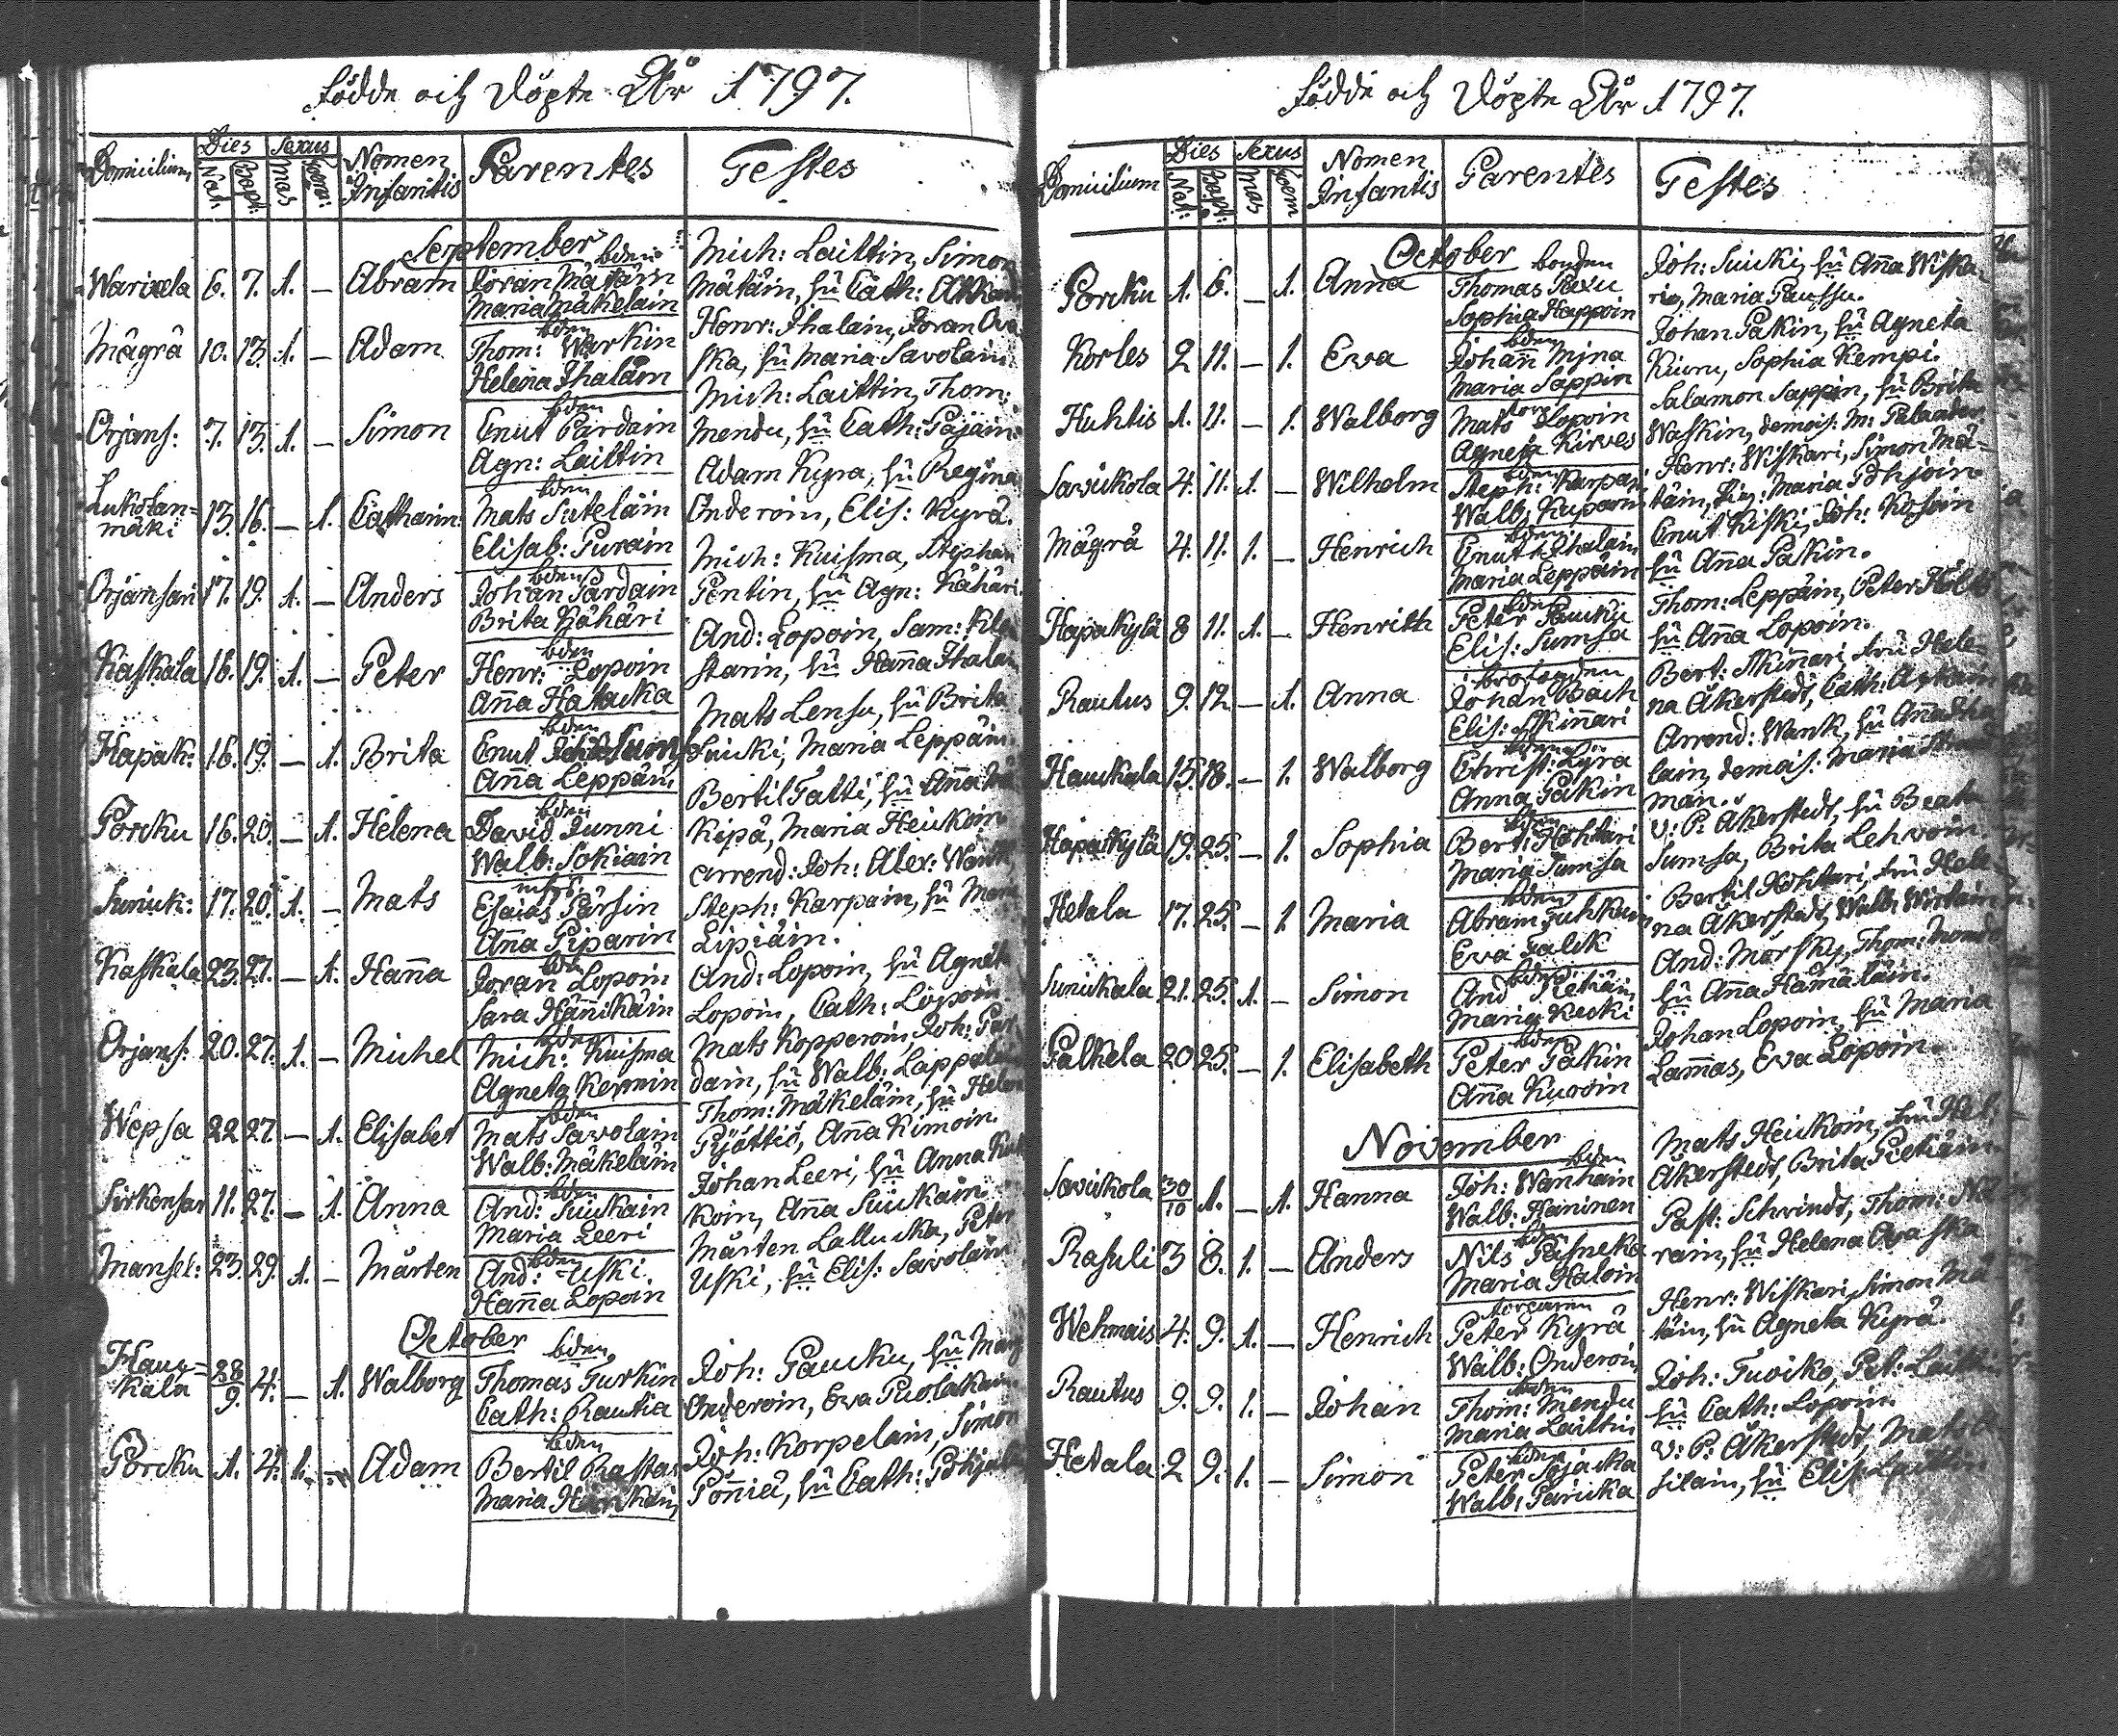 Födde och Döpte År 1797.
Domicilium Dies Sexus Nomen Infantis Parentes Testes
Nat: Bapt: Mas Foem:
September
Warixela 6. 7. 1. — Abram bden Jöran Mätäin Maria Mäkeläin Mich: Laittin, Simon
Mätäin, hu Cath:
Mägrä 10. 13. 1. — Adam bden Thom: Warkin Helena Ihalain Henr: Ihalain, Jöran
ska, hu Maria Savolain.
Orjans: 7. 13. 1. — Simon bden Enut Pardain Agn: Laittin Mich: Laittin, Thom:
Mendu, hu Cath: Päjäin
mäki 13. 16. — 1. Catharin: bden Mats Suteläin Elisab: Purain Adam Kyra, hu Regina
Onderoin, Elis: Kyrä.
Orjansari 17. 19. 1. — Anders bden Johan Pardain Brita Kähäri Mich: Kuisma, Stephan
Pentin, hu Agn: Kähäri.
Kaskala 16. 19. 1. — Peter bden Henr: Lopoin Aña Hatacka And: Lopoin, Sam:
starin, hu Haña Ihalain
Hapak: 16. 19. — 1. Brita bden Enut Aña Leppäin Mats Lensu, hu Brita
Suicki, Maria Leppäin.
Porcku 16. 20. — 1. Helena bden David Junni Walb: Sokiain Bertil Tatti, hu Aña
Kipä, Maria Heickoin
Sunick: 17. 20. 1. — Mats Esaias Pärsin Aña Piparin Arrend: Joh: Alex:
Steph: Karpain, hu
Lipiäin.
Kaskala 23. 27. — 1. Haña bden Jöran Lopoin Sara Häñikäin And: Lopoin, hu Agneta
Lopoin, Cath: Lopoin
Orjans: 20. 27. 1. — Michel bden Mich: Kuisma Agneta Kermin Mats Kopperoin, Joh: Par
dain, hu Walb: Lappalain
Wepsa 22 27. — 1. Elisabet bden Mats Savolain Walb: Mäkeläin Thom: Mäkeläin, hu Helen
Pyöttiö, Aña Kimoin.
Sirkensar 11. 27. — 1. Anna bden And: Suickain Maria Leeri Johan Leeri, hu Anna
koin, Aña Suickain.
23. 29. 1. — Mårten bden And: Uski. Haña Lopoin Mårten Lallucka, Peter
Uski, hu Elis: Savolain
October
Hauc=
kala 28/9. 4. — 1. Walborg bden Thomas Turkin Cath: Rautia Joh: Paucku, hu
Onderoin, Eva Puolakain.
Porcku 1. 4. 1. — Adam bden Bertil Rastas Maria Joh: Korpelain, Simon
Poñiä, hu Cath:
Födde och Döpte År 1797.
Domicilium Dies Sexus Nomen Infantis Parentes Testes
Nat: Bapt: Mas Foem
October
Porcku 1. 6. — 1. Anna bonden Thomas Paxu Sophia Happoin Joh: Suicki, hu Aña Wiska
ri, Maria Paussu.
Korles 2 11. — 1. Eva bden Johañ Mjna Maria Sappin Johan Päkin, hu Agneta
Kiuru, Sophia Kempi.
Huhtis 1. 11. — 1. Walborg Mats Lopoin Agneta Kirves Salamon Sappin, hu Brita
Waskin, demois: M: Palander.
Savickola 4. 11. 1. — Wilhelm bden Steph: Karpain Walb: Henr: Wiskari, Simon Mä-
täin, Maria Pohjoin
Mägrä 4. 11. 1. — Henrich bden Enut Ihalain Maria Leppäin Enut Kiski, Joh: Kosoin
hu Aña Pakin.
Hapakylä 8 11. 1. — Henrich bden Peter Paucku Elis: Sumsa Thom: Leppäin, Peter
hu Aña Lopoin.
Rautus 9. 12. — 1. Anna Johan Bach Elis: Skiñari Bert: Skiñari, fru Hele-
na Åkerstedt, Cath:
Hauckala 15. 18. — 1. Walborg Christ: Lyra Anna Päkin Arrend: Wank, hu Aña
lain, demois: Maria
man.
Hapakylä 19. 25. — 1. Sophia bden Bert: Hohtari Maria Sumsa V: P: Åkerstedt, hu Beata
Sumsa, Brita Lehvoin
Hetala 17. 25. — 1. Maria bden Abram Eva Galck Bertil Hohtari, fru Hele-
na Åkerstedt, Walb:
Sunickala 21. 25. 1. — Simon bden And Maria Kecki And: Morsky, Thom:
hu Aña Hämäläin.
Palkela 20 25. — 1. Elisabeth bden Peter Päkin Aña Kuroin Johan Lopoin, hu Maria
Lam̃as, Eva Lopoin.
November
Savickola 30/10 1. — 1. Hanna bden Joh: Wanhain Walb: Haninen Mats Heickoin, fru Hel:
Åkerstedt, Brita Pietiäin
Rasuli 3 8. 1. — Anders bd Nils Päsneka Maria Haloin Past: Schvindt, Thom:
rain, hu Helena Ovaska
Wehmais 4. 9. 1. — Henrich Peter Kyrä Walb: Onderoin Henr: Wiskari, Simon Mä
täin, hu Agneta Kyrä.
Rautus 9. 9. 1. — Johan bden Thom: Mendu Maria Laittin Joh: Tuvicko, Pet:
hu Cath: Lopoin.
Hetala 2 9. 1. — Simon bden Peter Walb: V: P: Åkerstedt, Mats
silain, hu Elis: Laittin